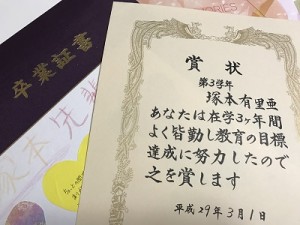 卒業証書
塚本先輩
賞状
第3学年
塚本有里亜
あなたは在学3ヶ年間
よく皆勤し教育の目標
達成に努力したので
之を賞します
平成29年3月1日